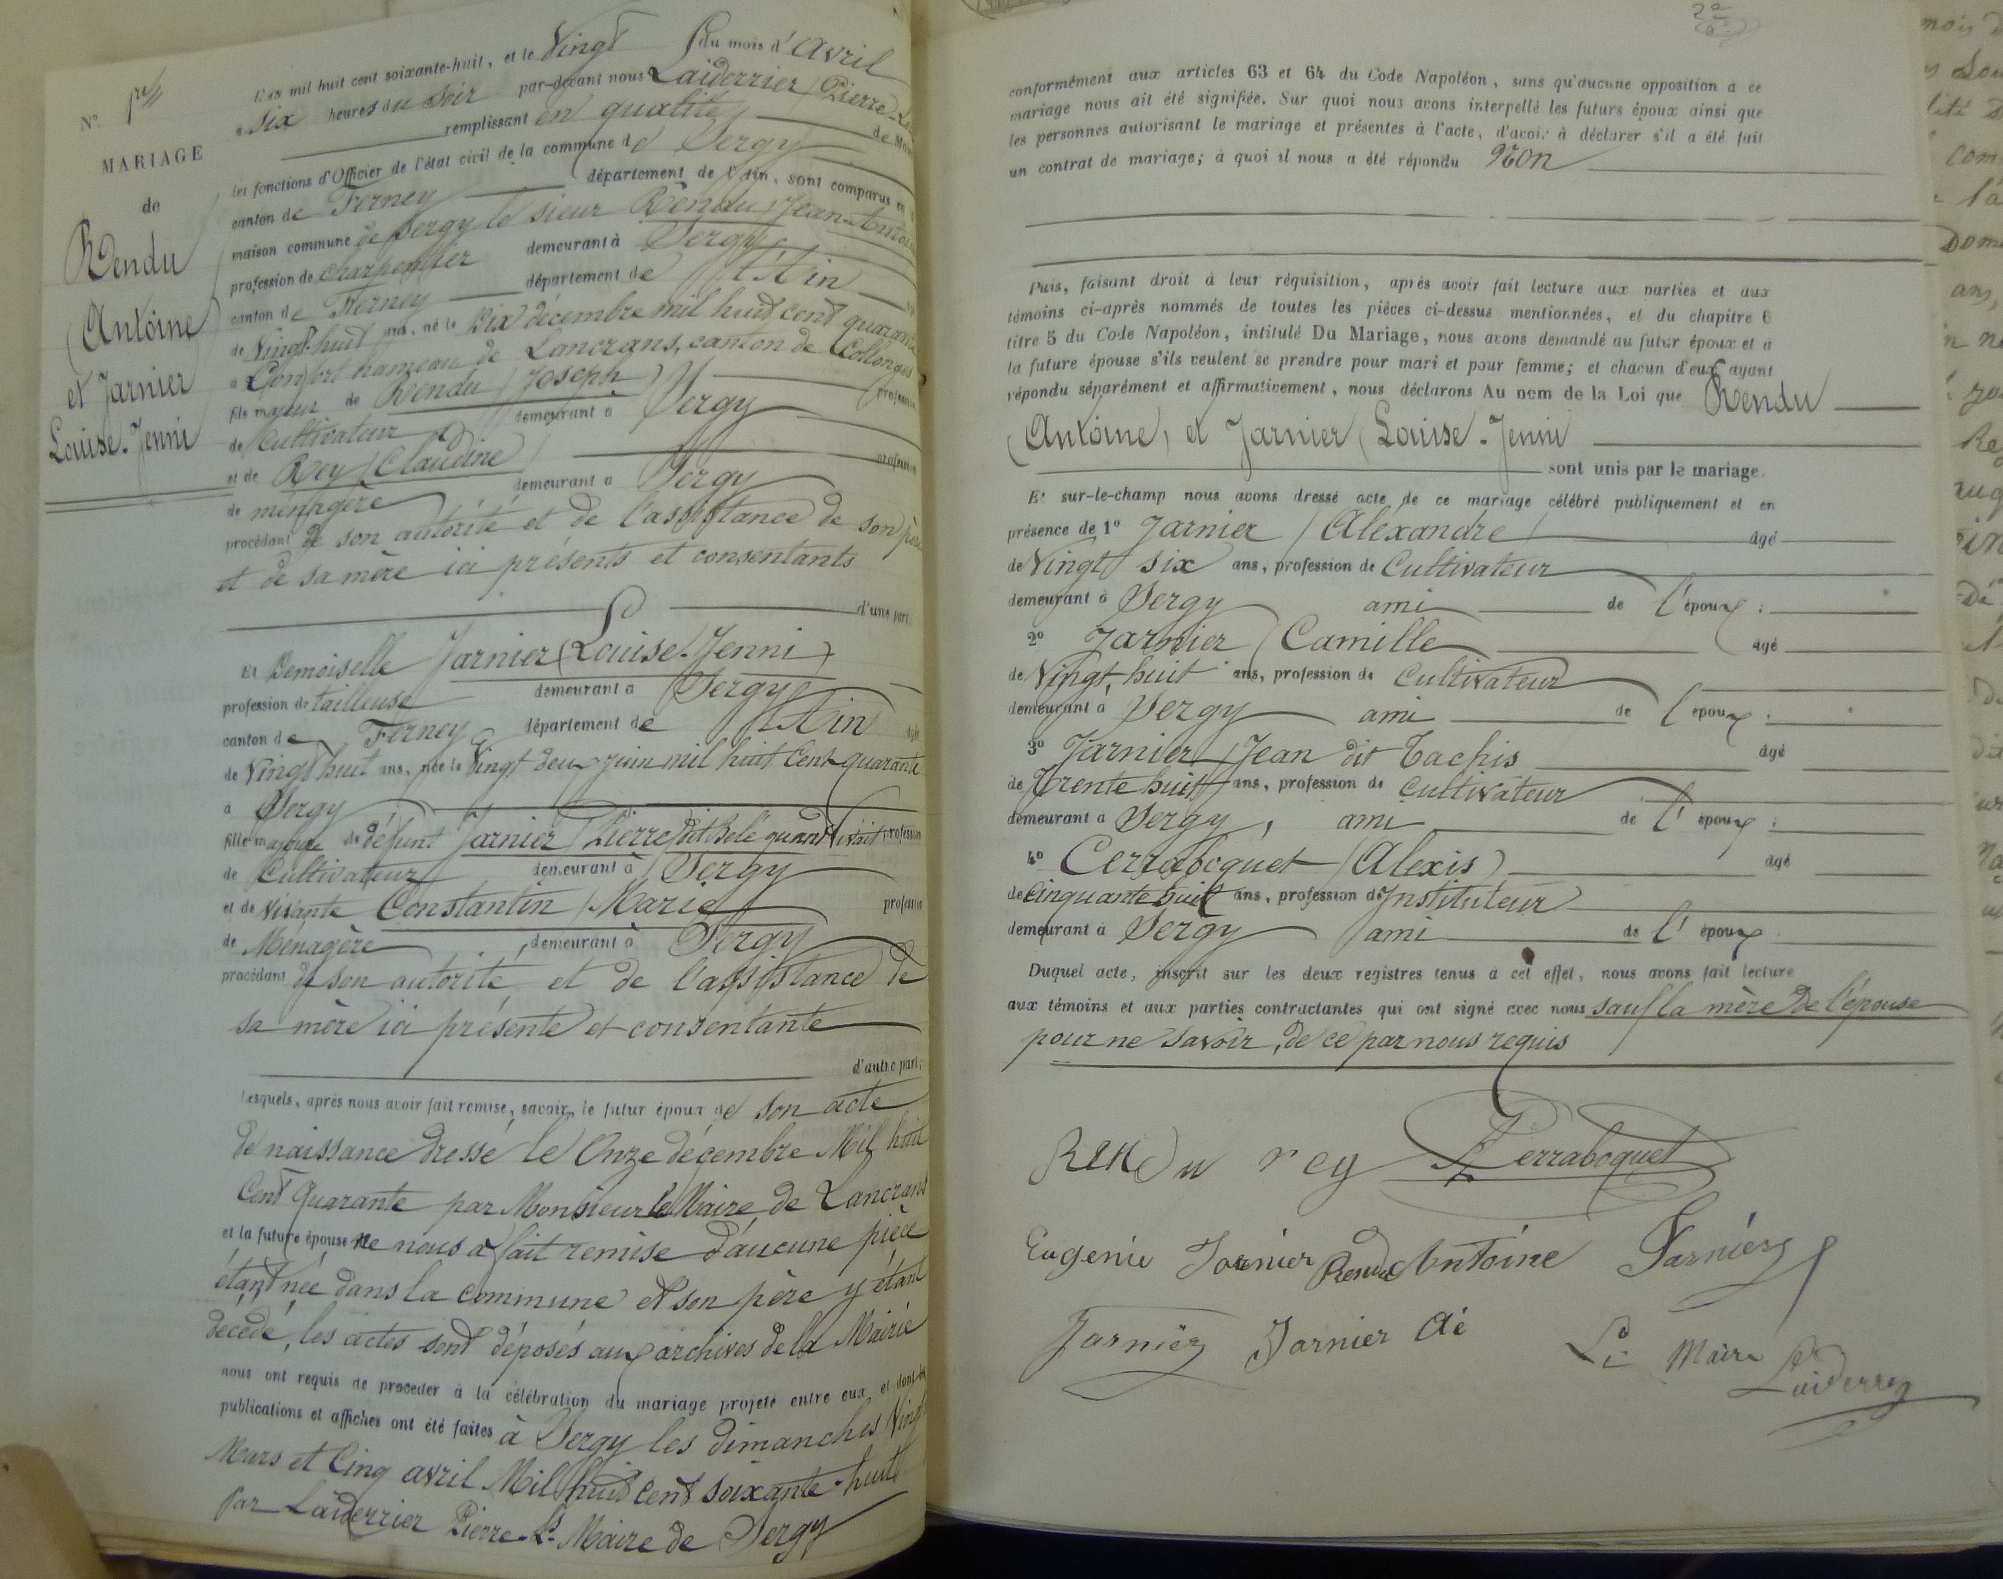 N° 1er
MARIAGE
de
Rendu
(Antoine)
et Jarnier
Louise-Jenni
L'an mil huit cent soixante-huit, et le Vingt du mois d'Avril
a six heures du soir par-devant nous Laiderrier (Pierre-
remplissant en qualité de
les fonctions d'Officier de l'état civil de la commune de Sergy
canton de Ferney département de l'Ain, sont comparus en
maison commune de Sergy le sieur Rendu (Jean-Antoine
profession de charpentier demeurant à Sergy
canton de Ferney département de l'Ain
de Vingt-huit ans, né le Dix décembre mil huit cent quarante
a Confort hameau de Lancrans, canton de Collonges
fils majeur de Rendu (Joseph) profession
de Cultivateur demeurant à Sergy
et de Rey (Claudine) profession
de ménagère demeurant a Sergy
procédant de son autorité et de l'assistance de son père
et de sa mère ici présents et consentants
d'une part.
Et Demoiselle Jarnier (Louise-Jenni)
profession de tailleuse demeurant a Sergy
canton de Ferney département de l'Ain
de Vingt huit ans, née le Vingt deux juin mil huit Cent quarante
a Sergy
fille majeure de défunt Jarnier (Pierre) dit Belé quand vivait profession
de Cultivateur demeurant à Sergy
et de vivante Constantin (Marie) profession
de Ménagère demeurant à Sergy
procédant de son autorité et de l'assistance de
sa mère ici présente et consentante
d'autre part;
Lesquels, après nous avoir fait remise, savoir, le futur époux de son acte
de naissance dressé le Onze décembre Mil huit
Cent Quarante par Monsieur le Maire de Lancrans
et la future épouse ne nous a fait remise d'aucune pièce
étant née dans la commune et son père y étant
décédé, les actes sont déposés aux archives de la Mairie
nous ont requis de procéder à la célébration du mariage projeté entre eux, et dont les
publications et affiches ont été faites à Sergy les dimanches Vingt
Mars et Cinq avril Mil huit cent soixante-huit
par Laiderrier Pierre-Ls Maire de Sergy
conformément aux articles 63 et 64 du Code Napoléon, sans qu'aucune opposition a ce
mariage nous ait été signifiée. Sur quoi nous avons interpellé les futurs époux ainsi que
les personnes autorisant le mariage et présentes à l'acte, d'avoir à déclarer s'il a été fait
un contrat de mariage; à quoi il nous a été répondu Non
Puis, faisant droit à leur réquisition, après avoir fait lecture aux parties et aux
témoins ci-après nommés de toutes les pièces ci-dessus mentionnées, et du chapitre 6
titre 5 du Code Napoléon, intitulé Du Mariage, nous avons demandé au futur époux et à
la future épouse s'ils veulent se prendre pour mari et pour femme; et chacun d'eux ayant
répondu séparément et affirmativement, nous déclarons Au nom de la Loi que Rendu
(Antoine) et Jarnier (Louise-Jenni
sont unis par le mariage.
Et sur-le-champ nous avons dressé acte de ce mariage célébré publiquement et en
présence de 1° Jarnier (Aléxandre) agé
de Vingt six ans, profession de Cultivateur
demeurant à Sergy ami de l'époux;
2° Jarnier (Camille agé
de Vingt, huit ans, profession de Cultivateur
demeurant à Sergy ami de l'époux;
3° Jarnier (Jean dit Tachis agé
de Trente huit ans, profession de Cultivateur
demeurant a Sergy, ami de l'époux;
4° Cerraboquet (Alexis) agé
de Cinquante huit ans, profession d'Instituteur
demeurant à Sergy ami de l'époux
Duquel acte, inscrit sur les deux registres tenus à cet effet, nous avons fait lecture
aux témoins et aux parties contractantes qui ont signé avec nous sauf la mère de l'épouse
pour ne savoir, de ce par nous requis
Rendu rey Perraboquet
Eugenie Jarnier Rendu Antoine Jarnier
Jarnier Jarnier Aé
Le Maire
Laiderrier